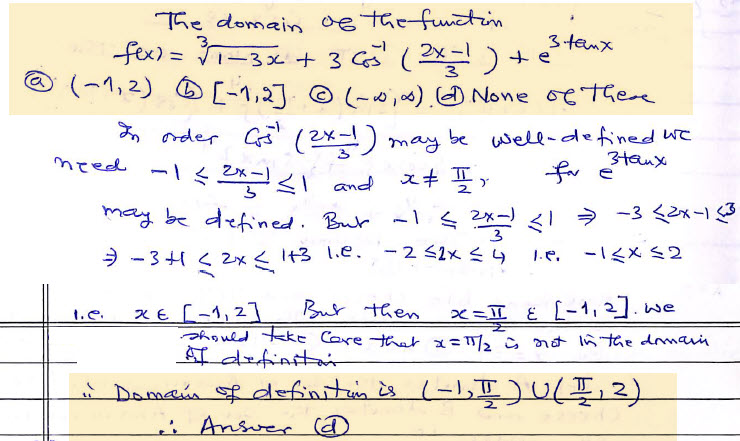 The domain of the function
f(x) = ∛(1-3x) + 3 Cos⁻¹ ( (2x-1)/3 ) + e^(3 tanx)
ⓐ (-1, 2) ⓑ [-1, 2] ⓒ (-∞, ∞). ⓓ None of these
In order Cos⁻¹ ( (2x-1)/3 ) may be well-defined we
need -1 ≤ (2x-1)/3 ≤ 1 and x ≠ π/2, for e^(3tanx)
may be defined. But -1 ≤ (2x-1)/3 ≤ 1 ⇒ -3 ≤ 2x-1 ≤ 3
⇒ -3+1 ≤ 2x ≤ 1+3 i.e. -2 ≤ 2x ≤ 4 i.e. -1 ≤ x ≤ 2
i.e. x ∈ [-1, 2] But then x = π/2 ∈ [-1, 2]. We
should take care that x = π/2 is not in the domain
of definition
∴ Domain of definition is (-1, π/2) ∪ (π/2, 2)
∴ Answer ⓓ